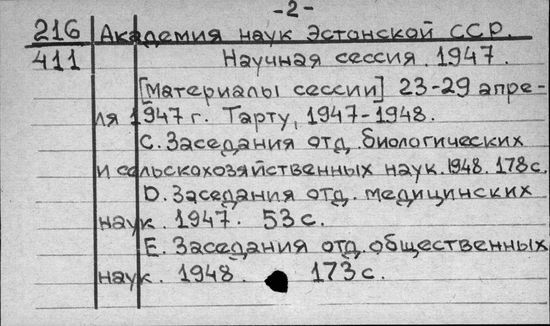 -2-
216 Академия наук Эстонской ССР.
411 Научная сессия. 1947.
[Материалы сессии] 23-29 апре-
ля 1947 г. Тарту, 1947-1948.
С. Заседания отд. биологических
и сельскохозяйственных наук. 1948. 178 с.
D. Заседания отд. медицинских
наук. 1947. 53 с.
Е. Заседания отд. общественных
наук. 1948. 173 с.